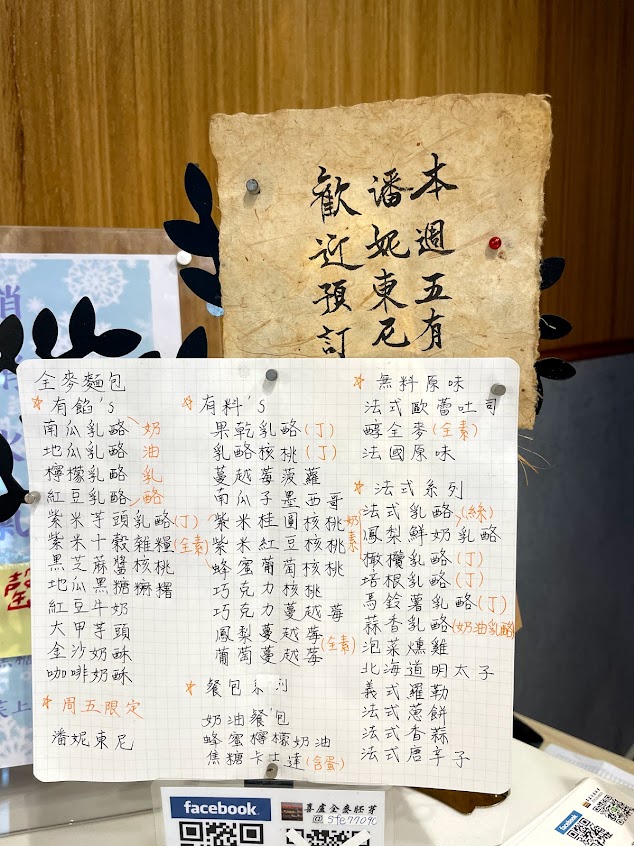 本週五有
潘妮東尼
歡迎預訂
全麥麵包
☆有餡'S
南瓜乳酪
地瓜乳酪
檸檬乳酪
紅豆乳酪
奶油乳酪
紫米芋頭乳酪(丁)
紫米十穀雜糧(全素)
黑芝麻醬核桃
地瓜黑糖麻糬
紅豆牛奶
大甲芋頭
金沙奶酥
咖啡奶酥
☆周五限定
潘妮東尼
☆有料'S
果乾乳酪(丁)
乳酪核桃(丁)
蔓越莓菠蘿
南瓜子墨西哥
紫米桂圓核桃
紫米紅豆核桃
蜂蜜葡萄核桃
奶素
巧克力核桃
巧克力蔓越莓
鳳梨蔓越莓
葡萄蔓越莓
(全素)
☆餐包系列
奶油餐包
蜂蜜檸檬奶油
焦糖卡士達(含蛋)
☆無料原味
法式歐蕾吐司
醇全麥(全素)
法國原味
☆法式系列
法式乳酪
鳳梨鮮奶乳酪
(絲)
橄欖乳酪(丁)
培根乳酪(丁)
馬鈴薯乳酪(丁)
蒜香乳酪(奶油乳酪)
泡菜燻雞
北海道明太子
義式羅勒
法式蔥餅
法式香蒜
法式唐辛子
facebook
喜盧全麥胚芽
facebook